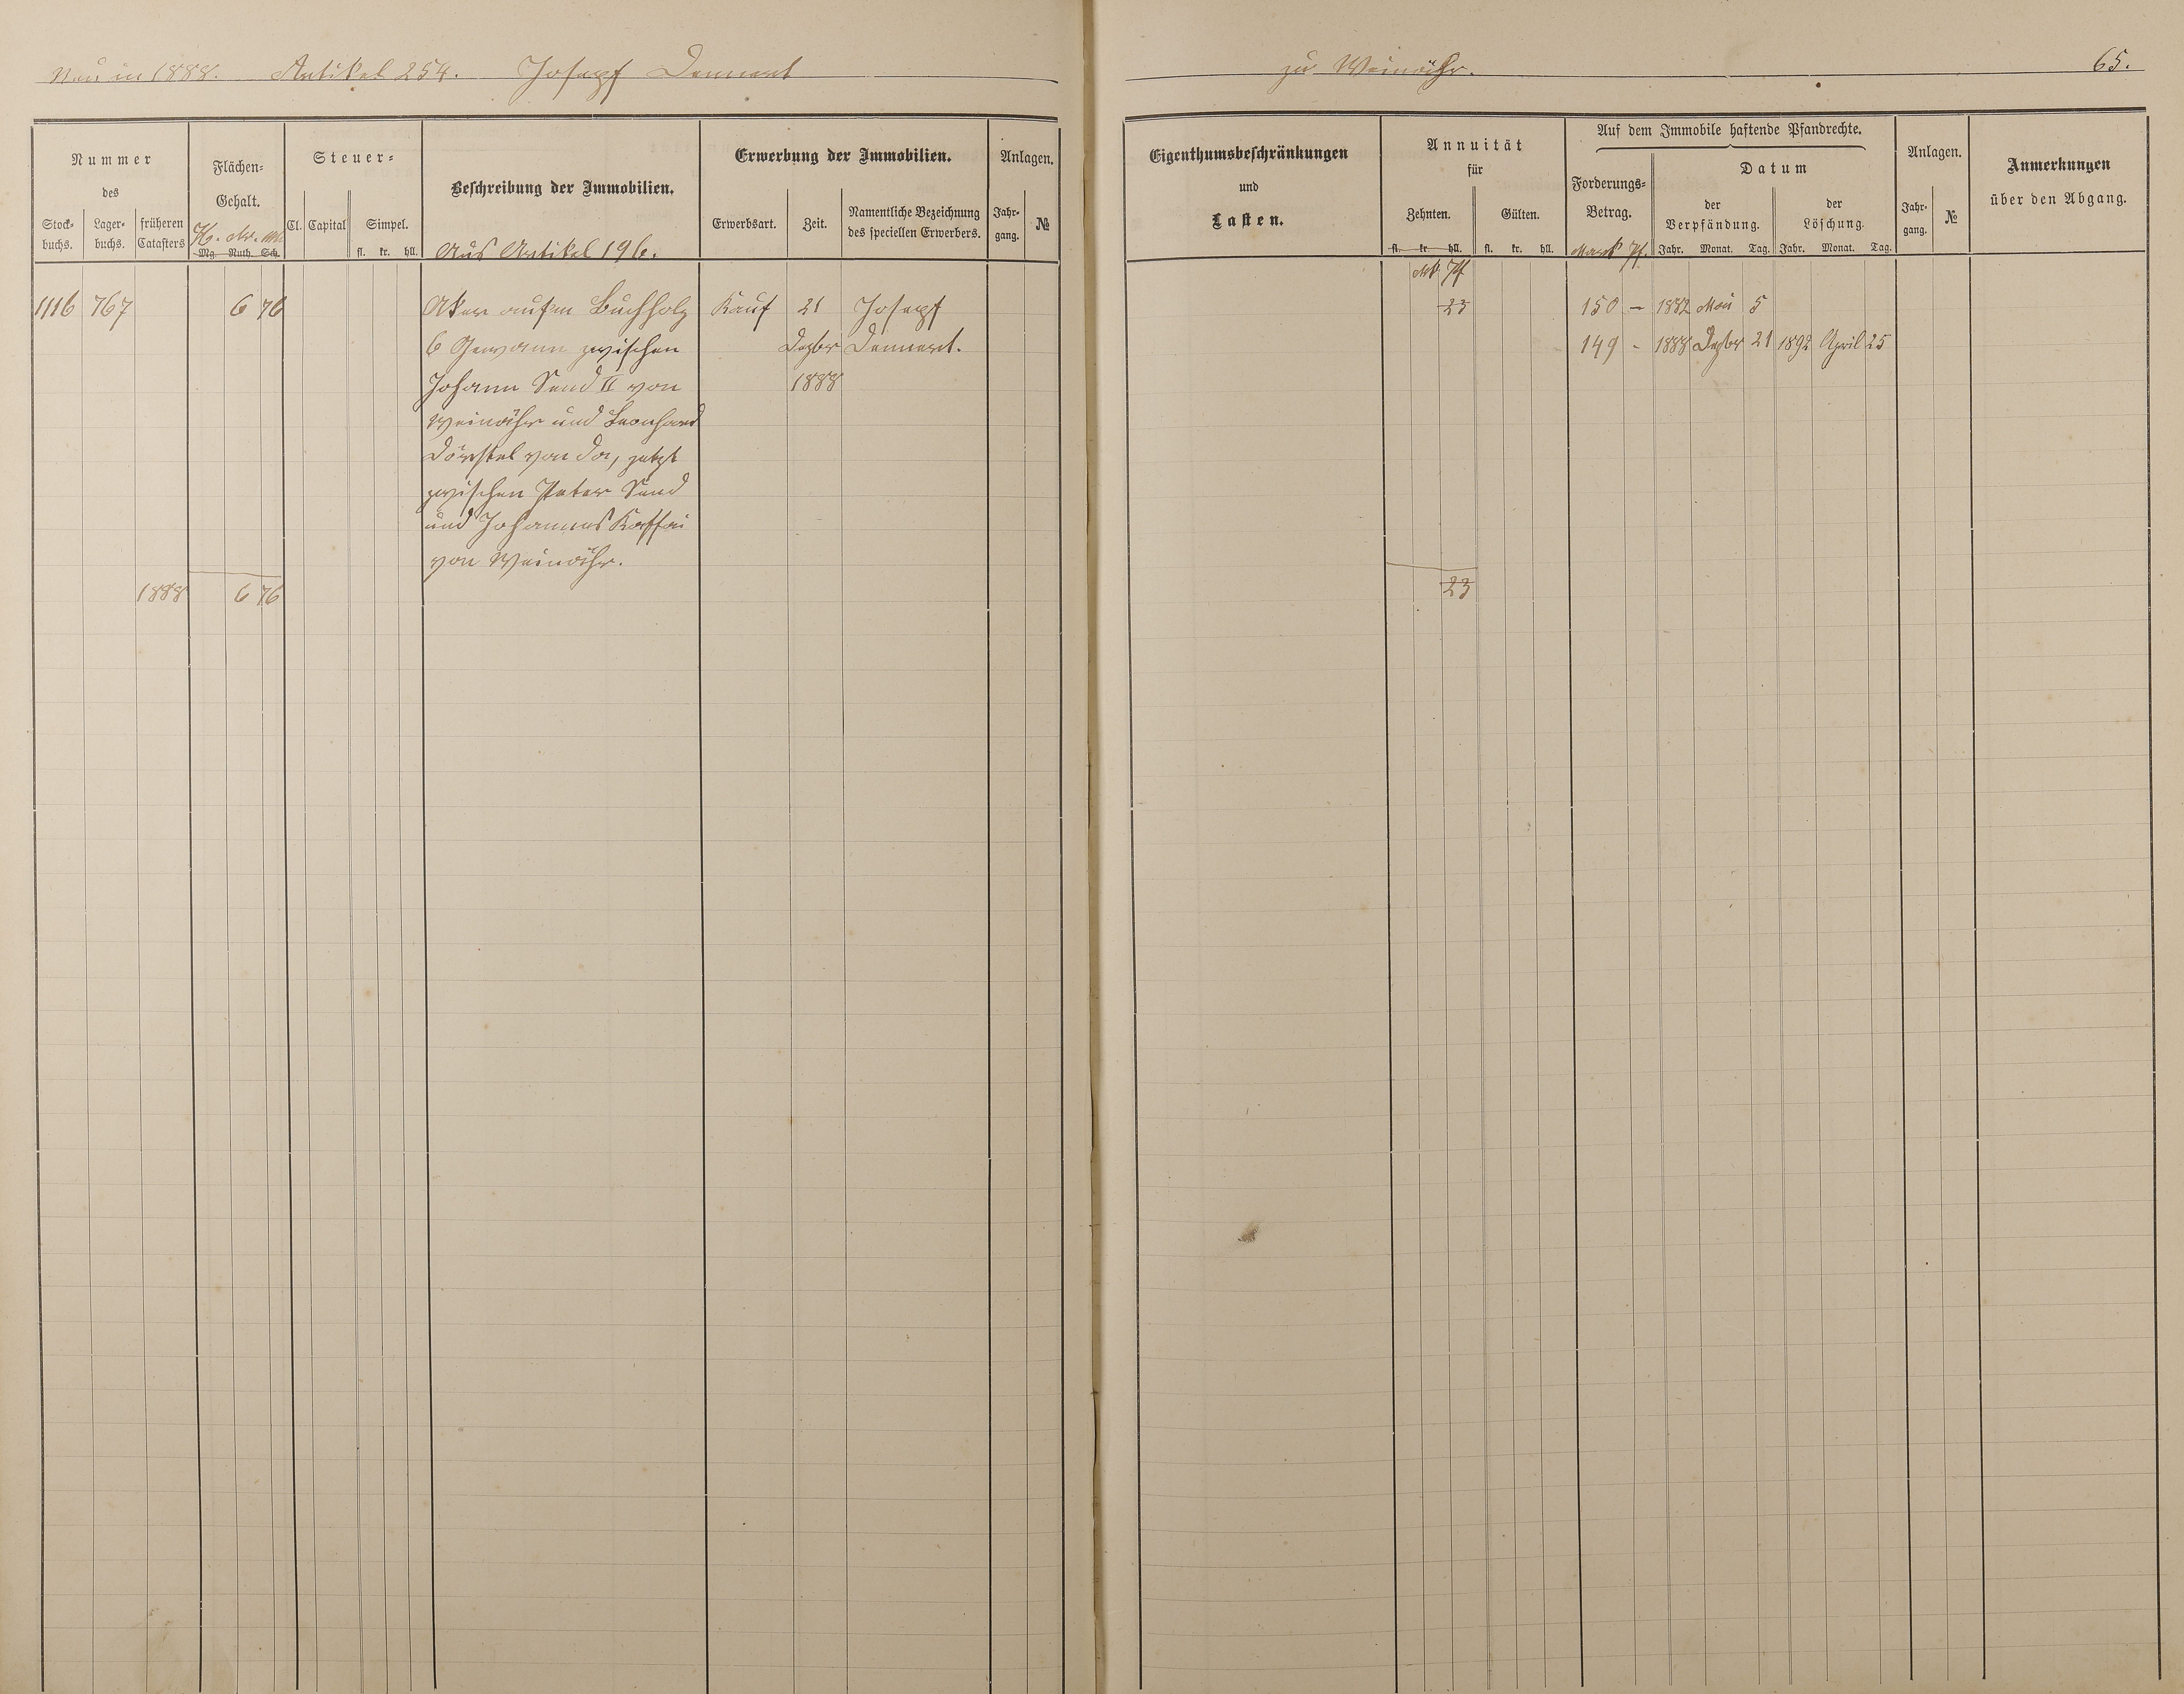 Neu in 1888. Artikel 254. Joseph Dennert zu Weinähr. 65.
Nummer
des
Stock-
buchs.
Lager-
buchs.
früheren
Catasters
Flächen-
Gehalt.
H. Ar. Mtr.
Mg. Ruth. Sch.
Steuer-
Cl. Capital Simpel.
fl. kr. hll.
Beschreibung der Immobilien.
Aus Artikel 196.
Erwerbung der Immobilien.
Erwerbsart. Zeit.
Namentliche Bezeichnung
des speciellen Erwerbers.
Anlagen.
Jahr-
gang.
№
Eigenthumsbeschränkungen
und
Lasten.
Annuität
für
Zehnten. Gülten.
fl. kr. hll. fl. kr. hll.
Mk Pf
Auf dem Immobile haftende Pfandrechte.
Forderungs-
Betrag.
Mark Pf.
Datum
der
Verpfändung.
Jahr. Monat. Tag.
der
Löschung.
Jahr. Monat. Tag.
Anlagen.
Jahr-
gang.
№
Anmerkungen
über den Abgang.
1116 767 6 76 Aker aufm Buchholz Kauf 21 Joseph 23 150 – 1882 Mai 5
6 Gewann zwischen Dezbr Dennert. 149 - 1888 Dezbr 21 1892 April 25
Johann Send II von 1888
Weinähr und Leonhard
Dörstel von da, jetzt
zwischen Peter Send
und Johannes Kaffai
von Weinähr.
1888 6 76 23